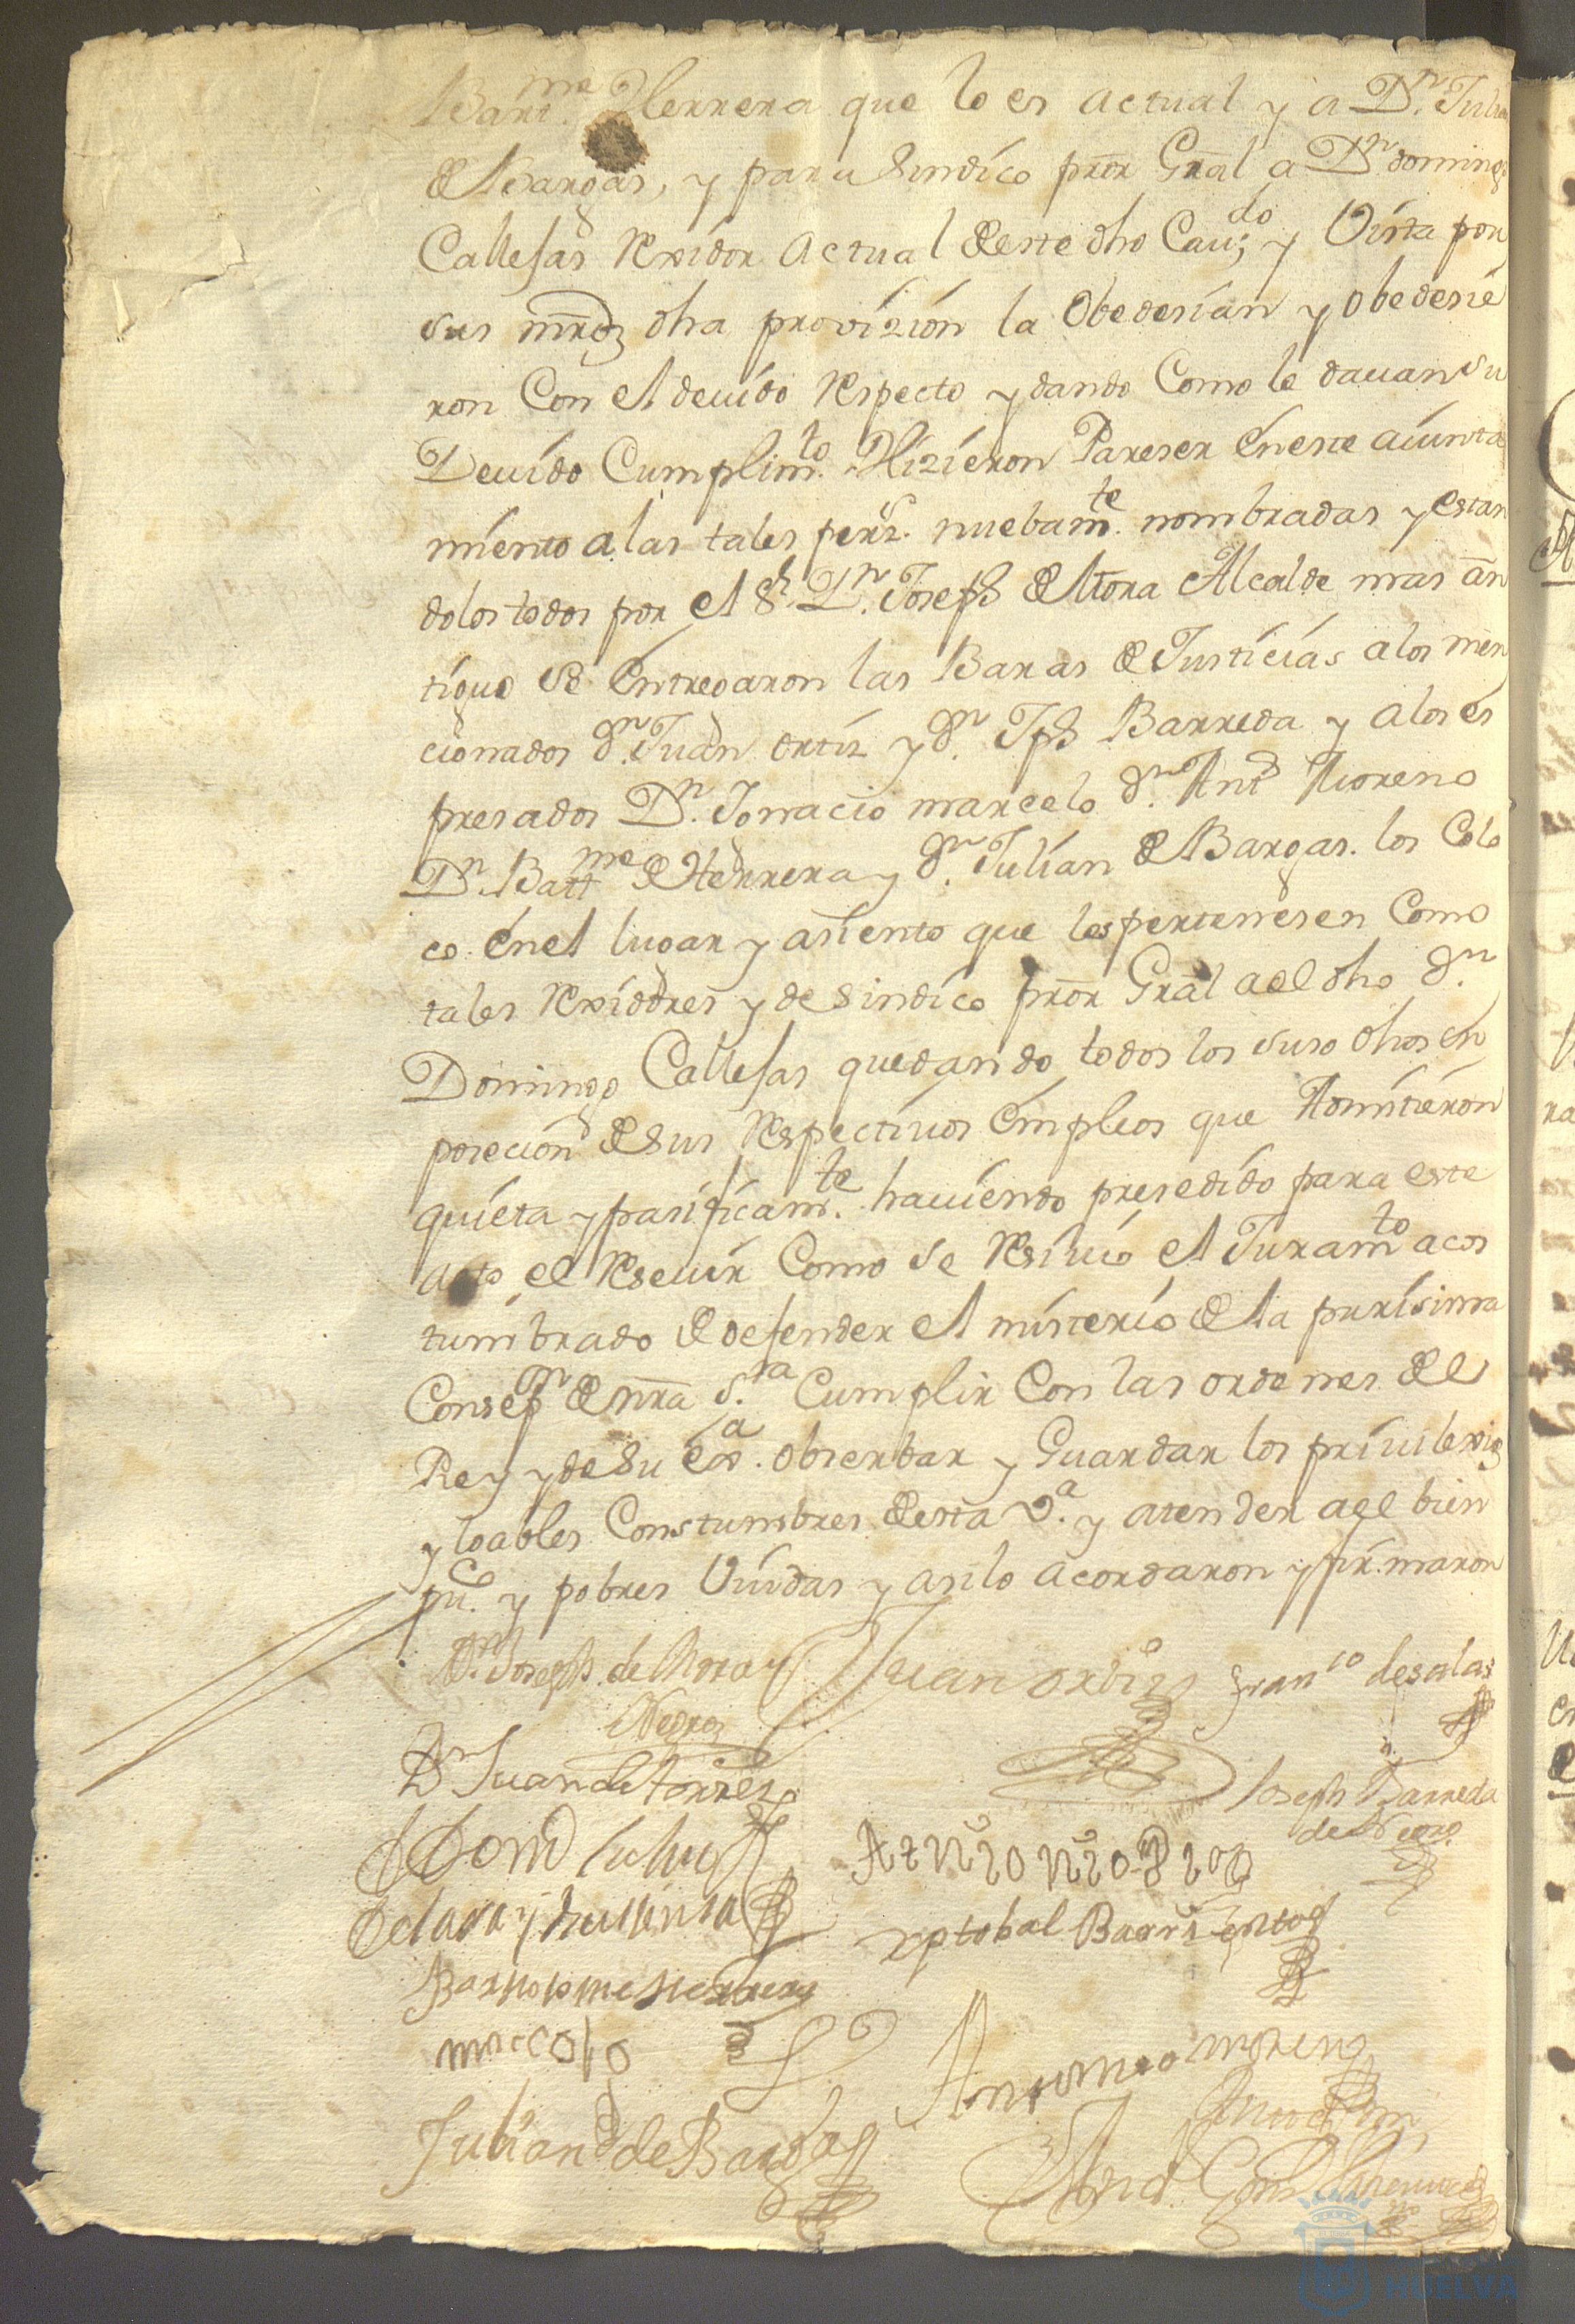 Bart.me Herrera que lo es actual y a Dn. Julian
de Bargas, y para Sindico pror Gral a Dn. domingo
Callejas Rexidor Actual de este dho Cau.do y Vista por
sus mrdz dha provizion la Obedesian y obedesie
ron Con el deuido Respecto y dando Como le dauan su
Deuido Cumplim.to Hizieron Pareser en este aiunta
miento a las tales pers.s nuebam.te nombradas y estan
dolos todos por el Sr. Dn. Joseph de Mora Alcalde mas an
tiguo se Entregaron las Baras de Justicias a los men
cionados dn. Juan ortiz y dn. Jph Barreda y a los es
presados Dn. Ignacio marcelo dn. Anto Moreno
Dn. Battme de Herrera y dn. Julian de Bargas. los Colo
co en el lugar y asiento que les pertenesen Como
tales Rexidores y de Sindico pror Gral a el dho dn.
Domingo Callejas quedando todos los suso dhos en
posecion de sus Respectiuos Empleos que Admitieron
quieta y pasificam.te hauiendo presedido para este
acto el Reseuir Como se Resiuio el Juram.to acos
tumbrado de defender el misterio de la purisima
Consepn de nra S.ra Cumplir Con las ordenes de el
Rey y de Su Exa. obserbar y Guardar los priuilexios
y loables Constumbres de esta V.a y atender a el bien
pu.co y pobres Viudas y asi lo acordaron y firmaron
Dn. Joseph de Mora y
Negro
Juan ortiz
Franco de salas
Dn Juan de torrez
Joseph Barreda
de
Antonio
xptobal Barrientos
Bartholome Herrera
Antonio moreno
Julian de Bargas
HUELVA